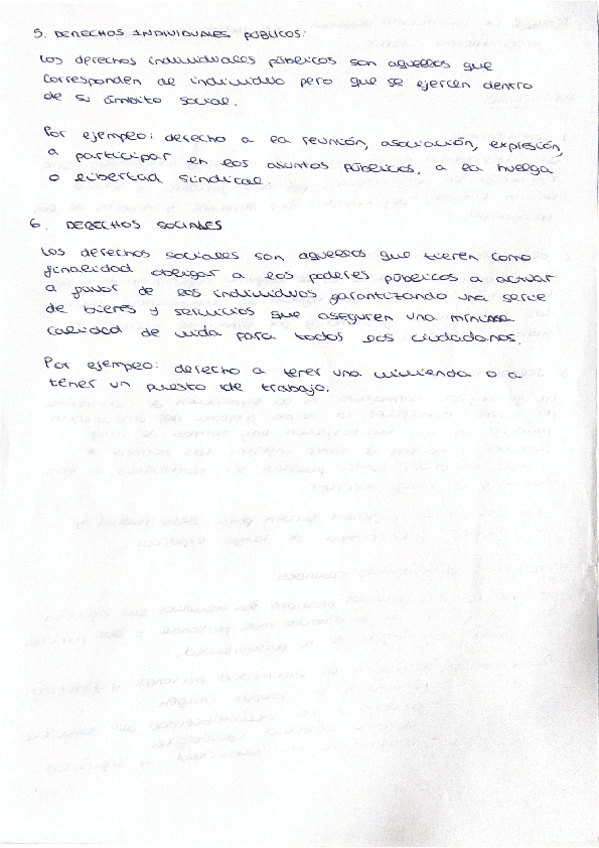 5. DERECHOS INDIVIDUALES PÚBLICOS:
Los derechos individuales públicos son aquellos que
corresponden al individuo pero que se ejercen dentro
de su ámbito social.
Por ejemplo: derecho a la reunión, asociación, expresión,
a participar en los asuntos públicos, a la huelga
o libertad sindical
6. DERECHOS SOCIALES
Los derechos sociales son aquellos que tienen como
finalidad obligar a los poderes públicos a actuar
a favor de los individuos, garantizando una serie
de bienes y servicios que aseguren una mínima
calidad de vida para todos los ciudadanos.
Por ejemplo: derecho a tener una vivienda o a
tener un puesto de trabajo.